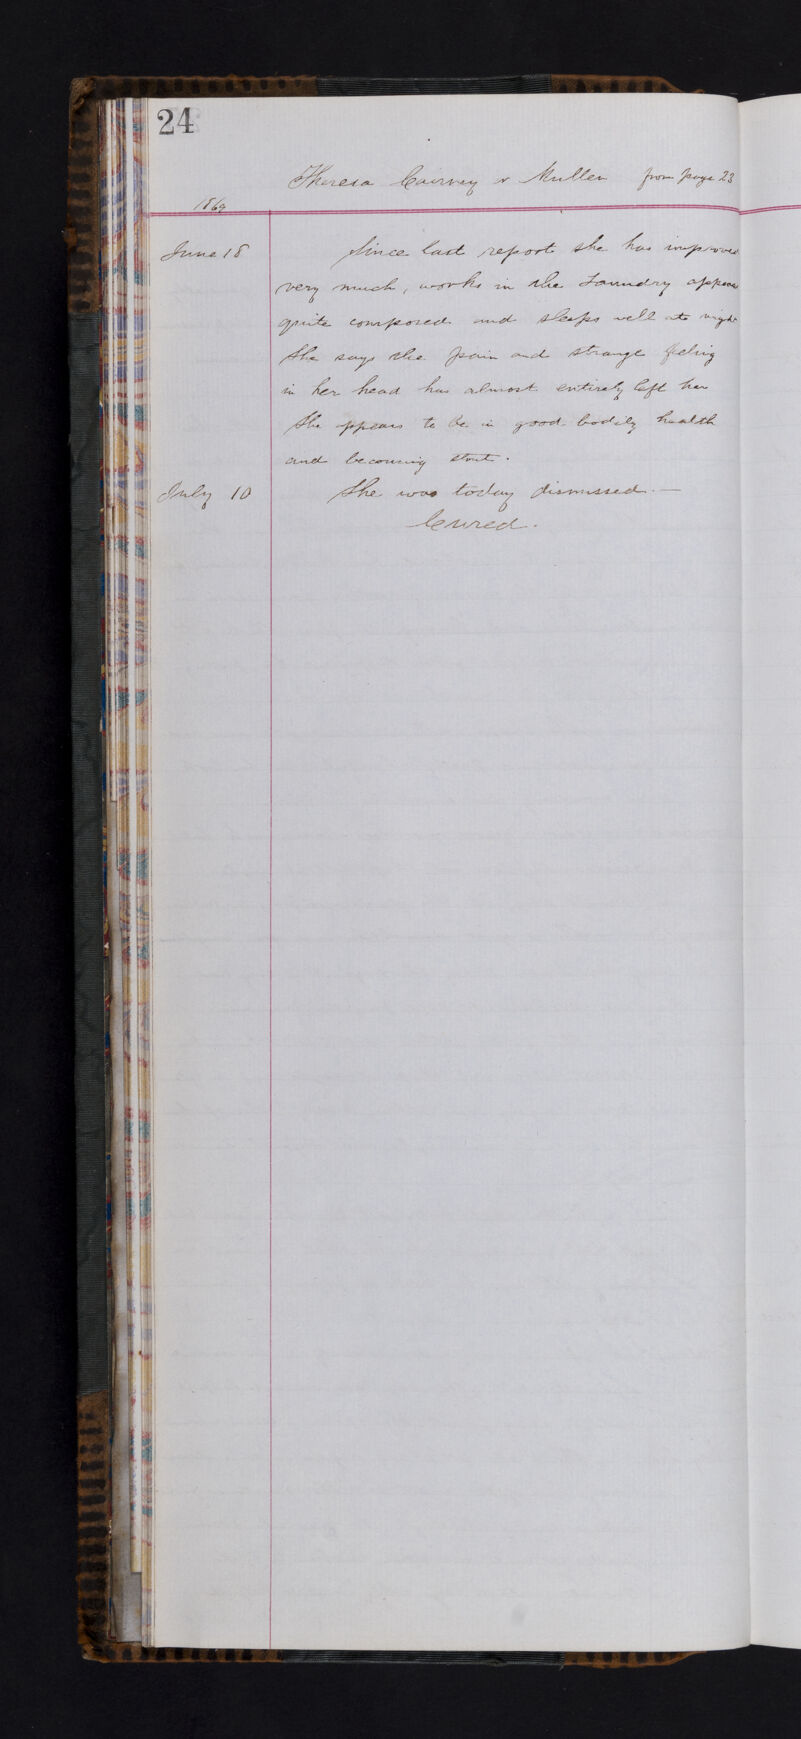 24
Theresa Cairney or Mullen from page 23
1869
June 18 Since last report she has improved
very much, works in the Laundry appears
quite composed and sleeps well at night
She says the pain and strange feeling
in her head has almost entirely left her
She appears to be in good bodily health
and becoming stout.
July 10 She was today dismissed. —
Cured.